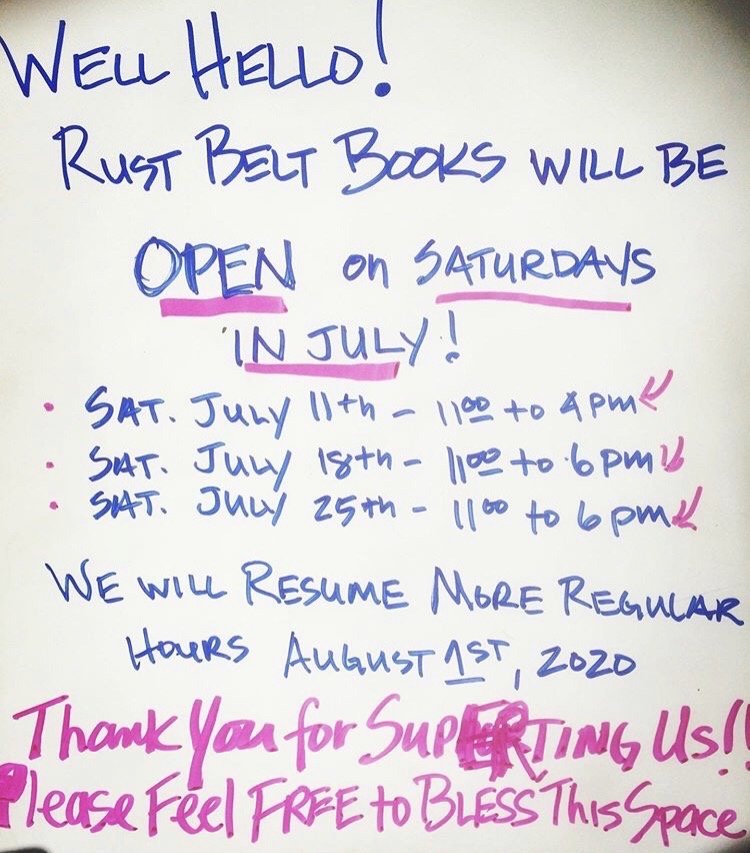 WELL HELLO!
RUST BELT BOOKS WILL BE
OPEN on SATURDAYS
IN JULY!
• SAT. JULY 11th - 11 00 to 4 pm
• SAT. JULY 18th - 11 00 to 6 pm
• SAT. JULY 25th - 11 00 to 6 pm
WE WILL RESUME MORE REGULAR
HOURS AUGUST 1ST, 2020
Thank You for SUPERTING Us!!
Please Feel FREE to BLESS This Space